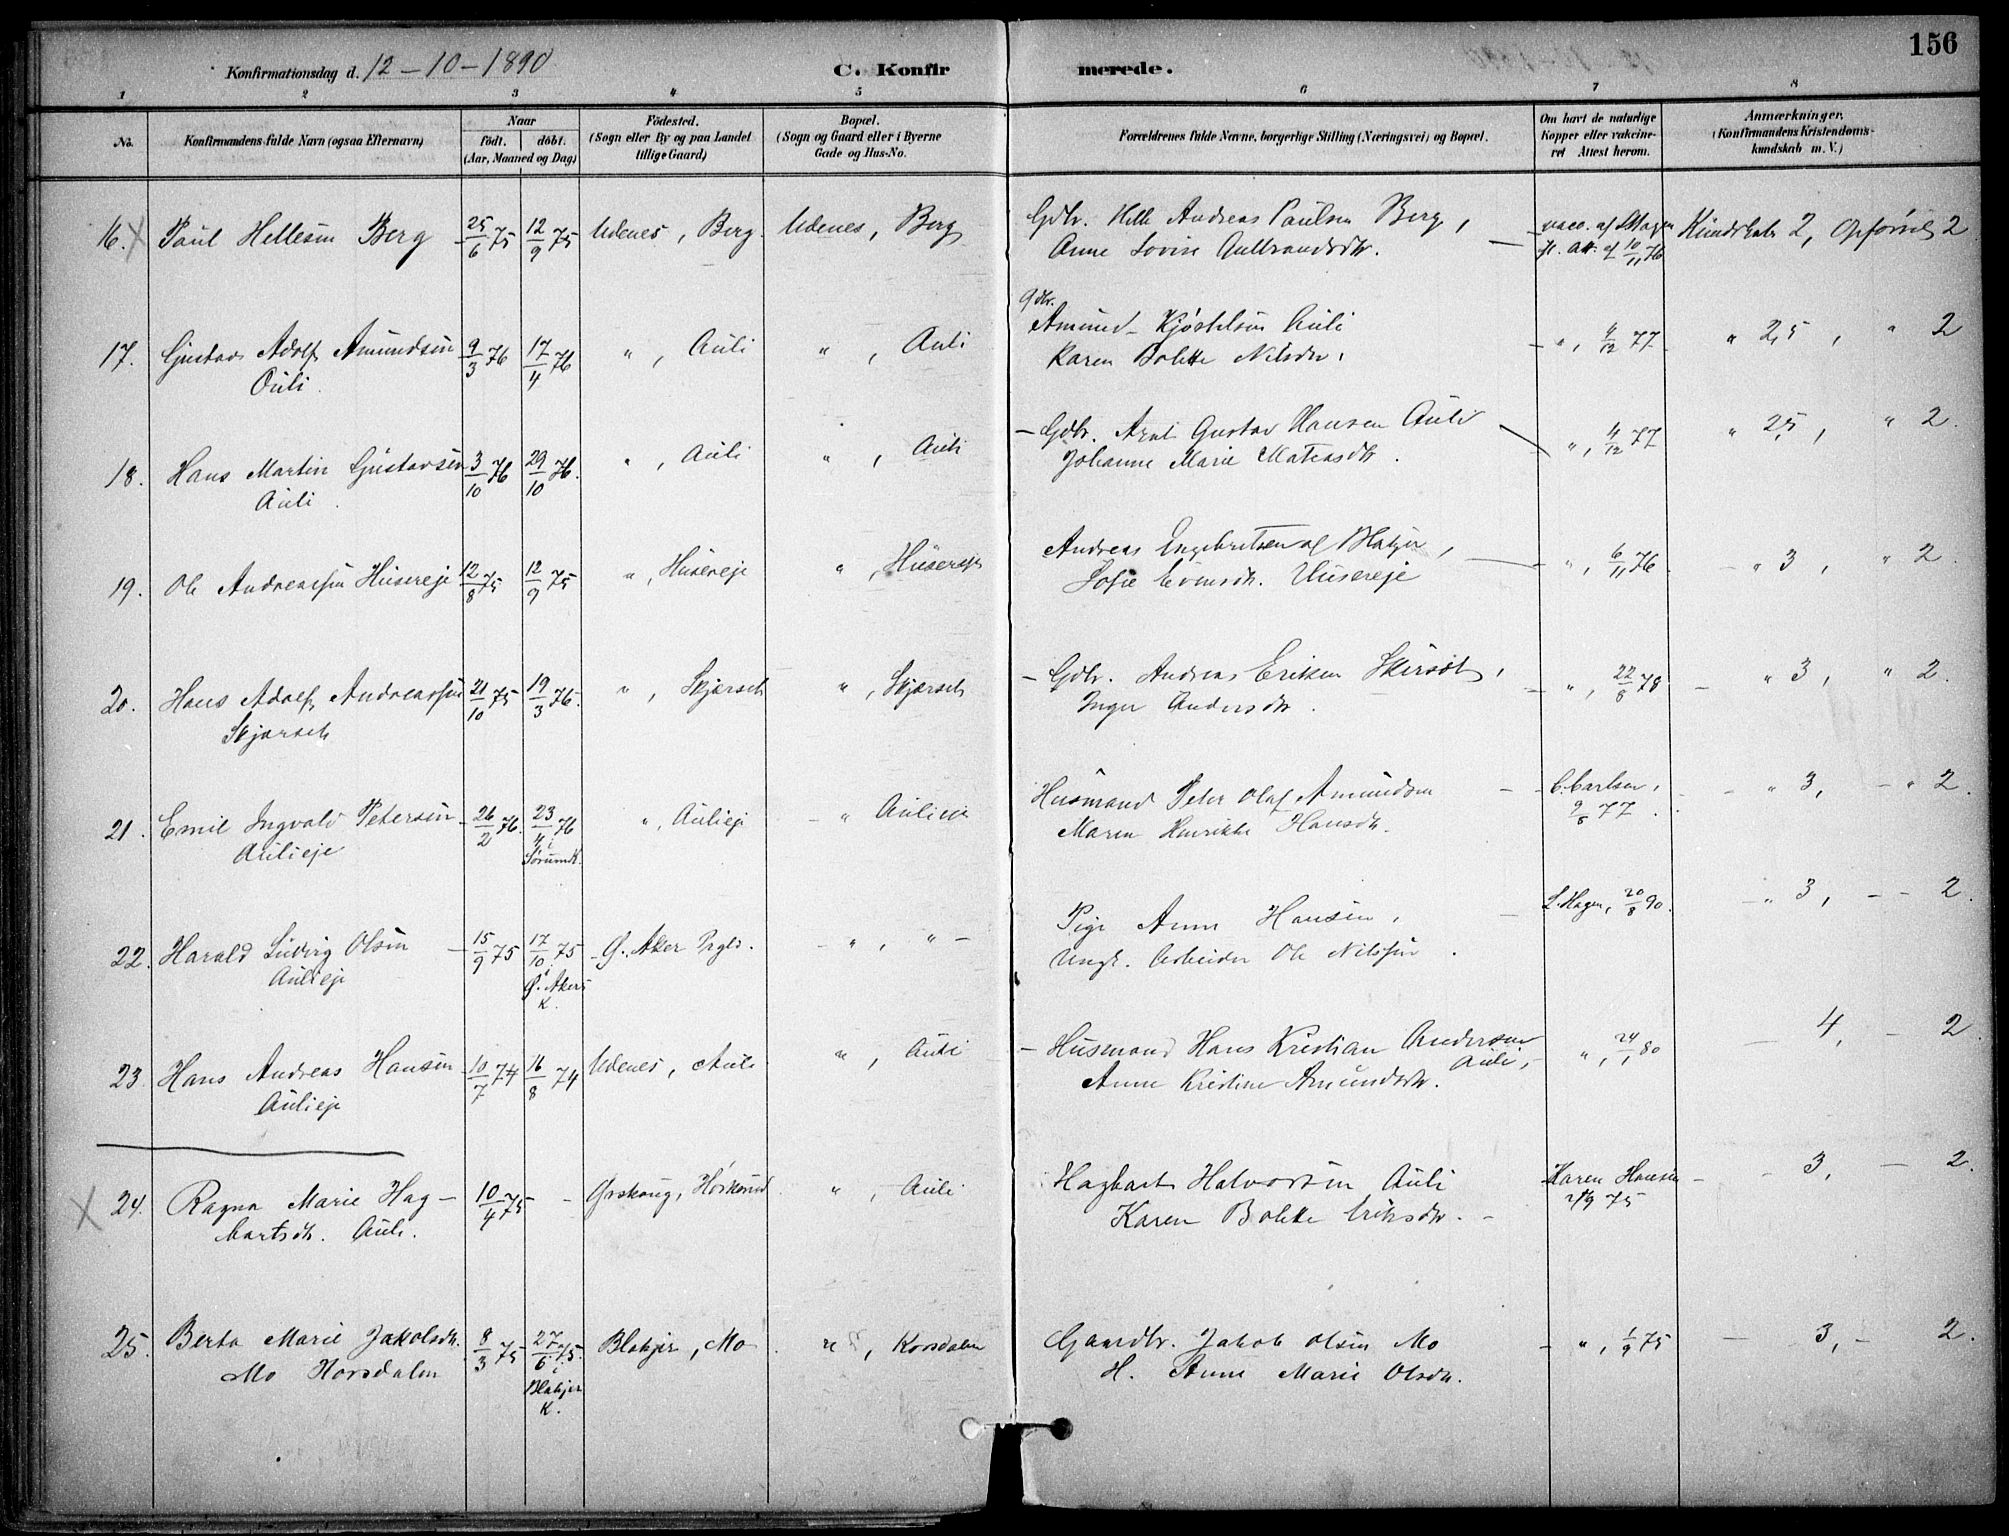 156
Konfirmationsdag d. 12-10-1890
C. Konfir merede.
1 2 3 4 5 6 7 8
No.
Konfirmandens fulde Navn (ogsaa Efternavn)
Naar
födt. döbt.
(Aar, Maaned og Dag)
Födested.
(Sogn eller By og paa Landet
tillige Gaard)
Bopæl.
(Sogn og Gaard eller i Byerne
Gade og Hus-No.
Forældrenes fulde Navne, borgerlige Stilling (Næringsvei) og Bopæl.
Om havt de naturlige
Kopper eller vakcine-
ret Attest herom.
Anmærkninger,
(Konfirmandens Kristendoms-
kundskab m. V.)
16. X Paul Hellesen Berg 25/6 75 12/9 75 Udenes, Berg. Udenes, Berg
Gdbr. Helle Andreas Paulsen Berg,
Anne Lovise Gulbrandsdtr.
vacc. af Hagen
fl. Att. af 10/11 76
Kundskab 2, Opførsel 2
17. Gustav Adolf Amundsen 9/3 76 17/4 76 ", Auli ", Auli
Auli.
Gdbr.
Amund Kjøstelsen Auli
Karen Bolette Nilsdtr.
", 4/12 77 " 2,5, " 2
18. Hans Martin Gustavsen 3/10 76 29/10 76. ", Auli ", Auli
Auli.
- Gdbr. Arnt Gustav Hansen Auli
Johanne Marie Mateasdtr.
", 4/12 77 " 2,5, " 2.
19. Ole Andreassen Husereje 12/8 75 12/9 75 ", Husereje ", Husereje
Andreas Engebretsen af Blakjer,
Sofie Evensdtr. Husereje
", 6/11 76 - " 3, " 2.
20. Hans Adolf Andreassen 21/10 75 19/3 76. ", Skjørseth ", Skjørseth
Skjørseth
- Gdbr. Andreas Eriksen Skirset,
Inger Andersdtr.
", 22/8 78 - " 3, " 2.
21. Emil Ingvald Petersen 26/2 76. 23/4 76 ", Aulieje - " Aulieje
Aulieje
i
Sørum K.
Husmand Peter Olaf Amundsen
Maren Henrikke Hansdtr.
C. Carlsen,
9/8 77.
- " 3, - " 2.
22. Harald Ludvig Olsen 15/9 75 17/10 75 Ø. Aker Prgld. - ", " -
Aulieje
i
Ø. Akers
K.
Pige Anne Hansen,
Ungk. Arbeider Ole Nilssen.
L. Hagen, 20/8 90. - " 3, - - 2.
23. Hans Andreas Hansen 10/7 74 16/8 74 Udenes, Auli ", Auli
Aulieje
- Husmand Hans Kristian Andersen
Auli,
Anne Kristine Amundsdtr.
", 24/1 80 - 4, - 2.
X 24. Ragna Marie Hag- 10/4 75 - - Ørskoug, ", Auli
bartsdtr. Auli.
Hagbart Halvorsen Auli
Karen Bolette Eriksdtr. -
Karen Hansen
21/9 75
- 3, - 2.
25. Berta Marie Jakobsdtr. 8/3 75 27/6 75. Blakjer, Mo. ", Korsdalen
Mo Korsdalen
i
Blakjer
K.
Gaardbr. Jakob Olsen Mo
H. Anne Marie Olsdtr.
", 1/9 75 - 3, - 2.